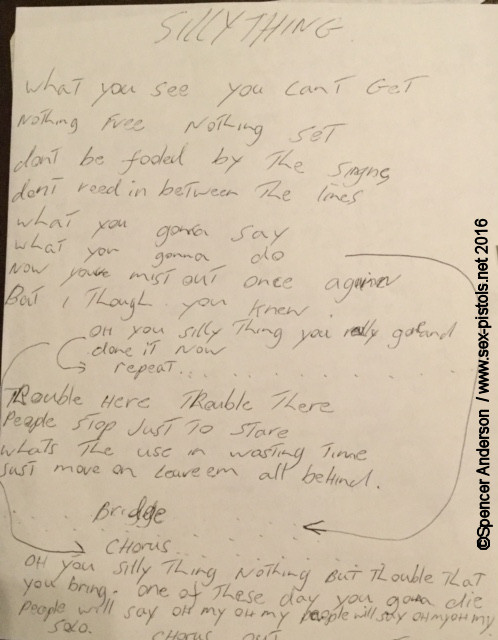 SILLY THING
What you see you can't Get
Nothing Free Nothing Set
dont be fooled by The signs
dont reed in between The lines
what you gonna say
what you gonna do
Now youve mist out once again
But i Though you knew
OH you silly Thing you really go and
done it now
repeat . . . . . . . . . .
TRouble Here TRouble There
People Stop Just To Stare
whats The use in wasting Time
Just move on Leave em all behind.
Bridge
CHORUS
OH you silly Thing Nothing But TRouble That
you bring. one of These day you gonna die
people will say oh my oh my people will say oh my oh my
Solo.
CHORUS OUT
©Spencer Anderson / www.sex-pistols.net 2016